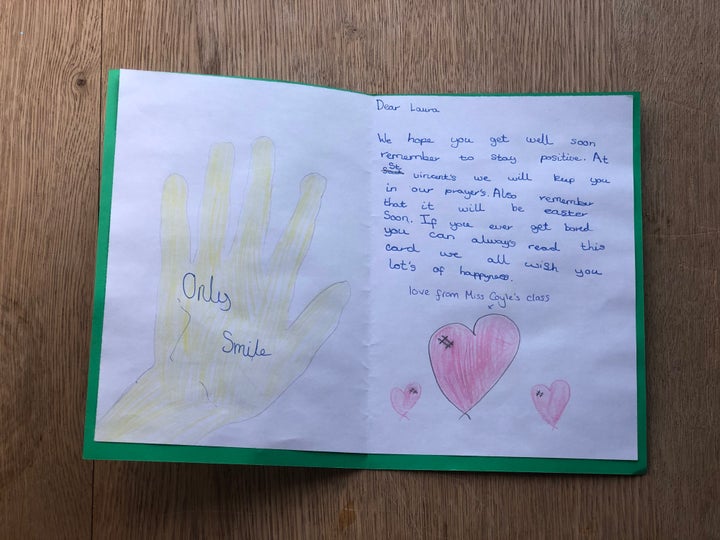 Only
Smile
Dear Laura
We hope you get well soon
remember to stay positive. At
St vincent's we will keep you
in our prayer's. Also remember
that it will be easter
Soon. If you ever get bored
you can always read this
card we all wish you
lot's of happyness.
love from Miss Coyle's class
x